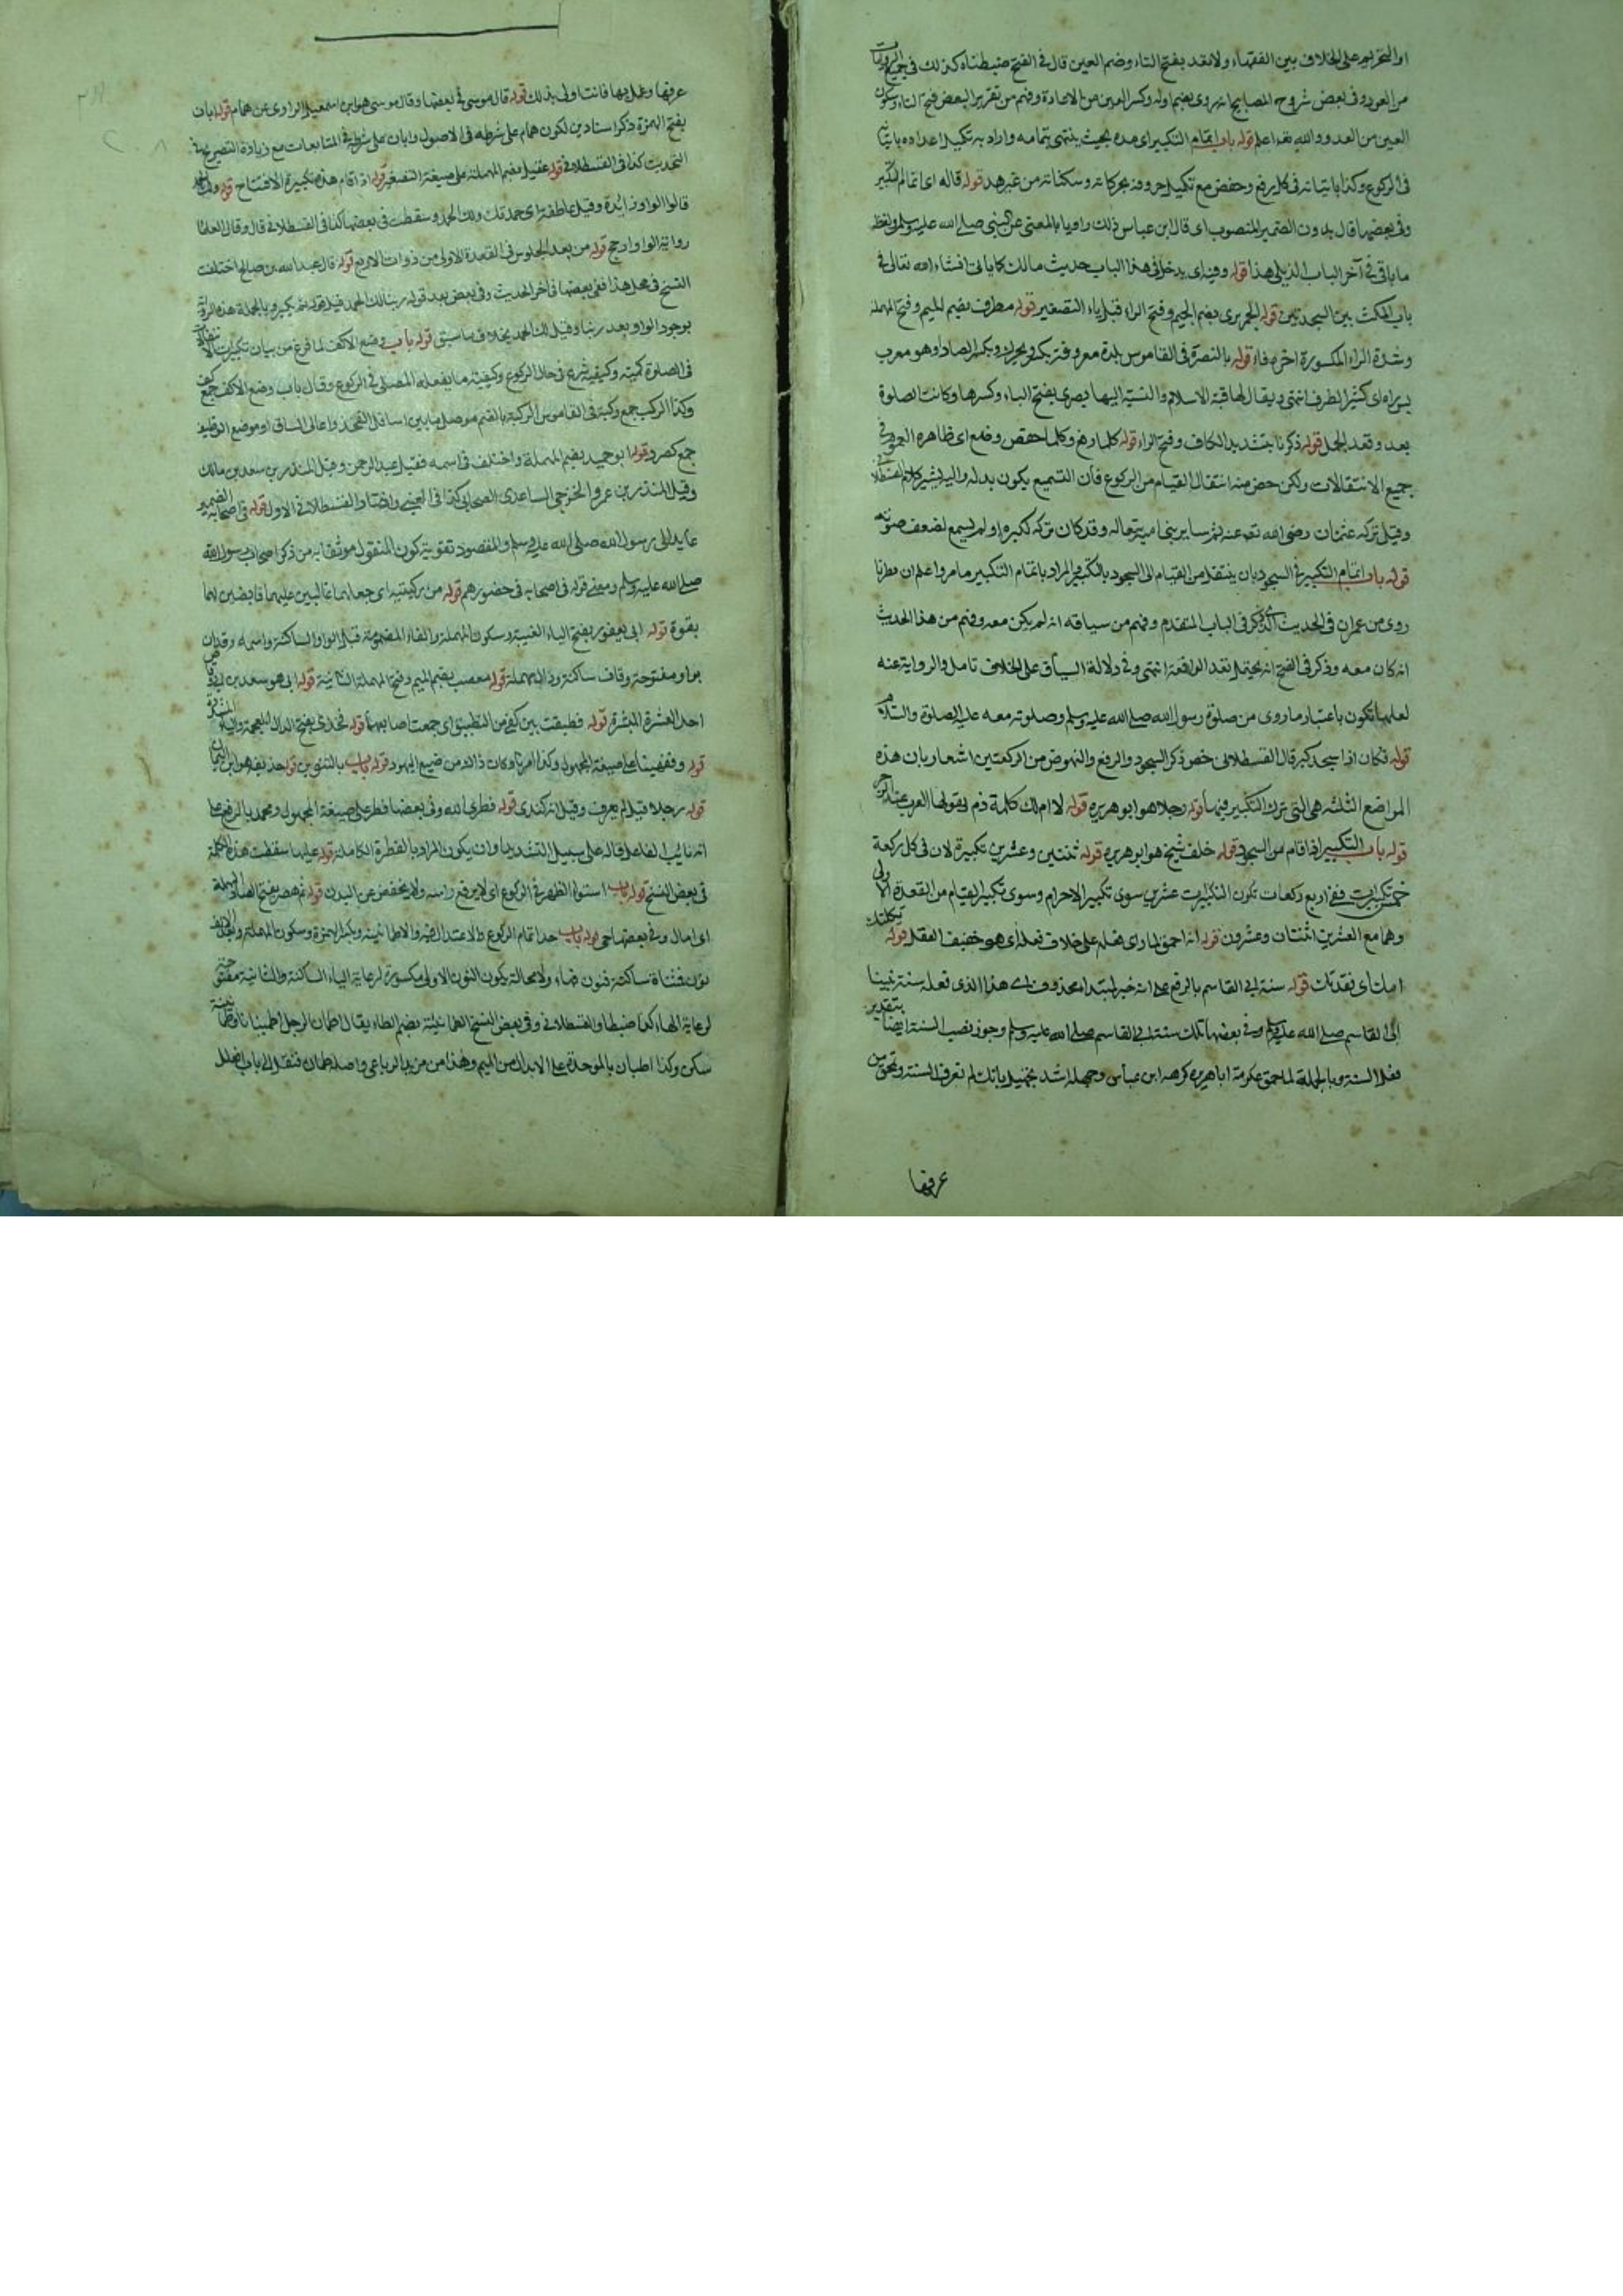 او التحريم على الخلاف بين الفقهاء ولا تعد بفتح التاء وضم العين قال في الفتح ضبطناه كذلك في جميع الروايات
من العود وفي بعض شروح المصابيح انه روي بضم اوله وكسر العين من الاعادة وفهم من تقرير البعض فتح التاء وسكون
العين من العدو والله تعه اعلم قوله باب اتمام التكبير اي مده بحيث ينتهي بتمامه واراد به تكميل اعداده باتيانه
في الركوع وكذا باتيانه في كل رفع وخفض مع تكميل حروفه بحركاته وسكناته من غير هد قوله قاله اي اتمام التكبير
وفي بعضها قال بدون الضمير المنصوب اي قال ابن عباس ذلك راويا بالمعنى عن النبي صلى الله عليه وسلم ولفظه
ما ياتي في آخر الباب الذي يلي هذا قوله وفيه اي يدخل في هذا الباب حديث مالك كما ياتي انشاء الله تعالى في
باب المكث بين السجدتين قوله الجريري بضم الجيم وفتح الراء قبل ياء التصغير قوله مطرف بضم الميم وفتح المهملة
وشدة الراء المكسورة اخره فاء قوله بالبصرة في القاموس بلدة معروفة ويكسر ويحرك وبكسر الصاد او هو معرب
بسراه اي كثير الطرق انتهى ويقال لها قبة الاسلام والنسبة اليها بصري بفتح الباء وكسرها وكانت الصلوة
بعد وقعة الجمل قوله ذكرنا بتشديد الكاف وفتح الراء قوله كلما رفع وكلما خفض وضع اي ظاهره العموم في
جميع الانتقالات ولكن خص منه انتقال القيام من الركوع فان التسميع يكون بدله واليه يشير كلام القسطلاني
وقيل تركه عثمان رضي الله تعه عنه ثم ساير بني امية رحاله وقد كان تركه لكبره او لم يسمع لضعف صوته
قوله باب اتمام التكبير في السجود بان ينتقل من القيام الى السجود بالتكبير المراد باتمام التكبير ما مر واعلم ان مطرفا
روى عن عمران في الحديث الذي ذكر في الباب المتقدم وفهم من سياقه انه لم يكن معه وفهم من هذا الحديث
انه كان معه وذكر في الفتح انه يحتمل تعدد الواقعة انتهى وفي دلالة السياق على الخلاف تامل والرواية عنه
لعلها تكون باعتبار ما روى من صلوة رسول الله صلى الله عليه وسلم وصلوته معه عليه الصلوة والسلام
قوله فكان اذا سجد كبر قال القسطلاني خص ذكر السجود والرفع والنهوض من الركعتين اشعار بان هذه
المواضع الثلثة هي التي ترك التكبير فيها قوله رجلا هو ابو هريرة قوله لا ام لك كلمة ذم يقولها العرب عند الزجر
قوله باب التكبير اذا قام من السجود قوله خلف شيخ هو ابو هريرة قوله ثنتين وعشرين تكبيرة لان في كل ركعة
خمس تكبيرات ففي اربع ركعات تكون التكبيرات عشرين سوى تكبير الاحرام وسوى تكبير القيام من القعدة الاولى
وهما مع العشرين اثنتان وعشرون قوله انه احمق لما راى فعله على خلاف فعله اي هو خفيف العقل قوله ثكلتك
امك اي فقدتك قوله سنة ابي القاسم بالرفع على انه خبر لمبتدا محذوف اي هذا الذي فعله سنة نبينا
ابي القاسم صلى الله عليه وسلم وفي بعضها تلك سنة ابي القاسم صلى الله عليه وسلم وجوز نصب السنة ايضا بتقدير
فعل السنة وبالجملة لما حمق عكرمة ابا هريرة كرهه ابن عباس وجهله اشد تجهيل بانك لم تعرف السنة وتحمق من
عرفها
عرفها وعمل بها فانت اولى بذلك قوله قال موسى في بعضها وقال موسى هو ابن اسمعيل الراوي عن همام قوله ابان
بفتح الهمزة ذكر اسنادين لكون همام على شرطه في الاصول وابان على شرطه في المتابعات مع زيادة التصريح في
التحديث كذا في القسطلاني قوله عقيل بضم المهملة على صيغة التصغير قوله اذا قام هذه تكبيرة الافتتاح قوله ولك الحمد
قالوا الواو زايدة وقيل عاطفة اي حمدتك ولك الحمد وسقطت في بعضها كذا في القسطلاني قال وقال العلماء
رواية الواو ارجح قوله من بعد الجلوس في القعدة الاولى من ذوات الاربع قوله قال عبد الله بن صالح اختلفت
النسخ في محل هذا ففي بعضها في آخر الحديث وفي بعض بعد قوله ربنا لك الحمد قبل قوله ثم يكبر وبالجملة هذه الرواية
بوجود الواو بعد ربنا وقيل لك الحمد بخلاف ما سبق قوله باب وضع الاكف لما فرغ من بيان تكبيرات الانتقالات
في الصلوة كميته وكيفيته شرع في حال الركوع وكيفية ما يفعله المصلي في الركوع وقال باب وضع الاكف جمع كف
وكذا الركب جمع ركبة في القاموس الركبة بالضم موصل ما بين اسافل الفخذ واعالي الساق او موضع الوظيف
جمع كصرد قوله ابو حميد بضم المهملة واختلف في اسمه فقيل عبد الرحمن وقيل المنذر بن سعد بن مالك
وقيل المنذر بن عمرو الخزرجي الساعدي الصحابي كذا في العيني واختار القسطلاني الاول قوله في اصحابه الضمير
عايد الى رسول الله صلى الله عليه وسلم والمقصود تقوية كون المنقول موثقا به من ذكر اصحاب رسول الله
صلى الله عليه وسلم ومعنى قوله في اصحابه في حضورهم قوله من ركبتيه اي جعلهما غالبين عليهما قابضين لهما
بقوة قوله ابي يعفور بفتح الياء الغيبة وسكون المهملة والفاء المضمومة قبل الواو الساكنة واسمه وقدان
بواو مفتوحة وقاف ساكنة ودال مهملة قوله مصعب بضم الميم وفتح المهملة الثانية قوله ابي هو سعد بن ابي وقاص
احد العشرة المبشرة قوله فطبقت بين كفي من التطبيق اي جمعت اصابعهما قوله فخذي بفتح الذال المعجمة والياء المشددة
قوله وفنهينا على صيغة المجهول وكذا امرنا وكان ذلك من صنيع اليهود قوله باب بالتنوين قوله حذيفة هو ابن اليمان
قوله رجلا قيل لم يعرف وقيل انه كندي قوله فطر الله وفي بعضها فطر على صيغة المجهول ومحمد بالرفع على
انه نايب الفاعل قاله على سبيل التشديد او ان يكون المراد بالفطرة الكاملة قوله عليها سقطت هذه الكلمة
في بعض النسخ قوله باب استواء الظهر في الركوع اي لا يرفع راسه ولا يخفض عن البدن قوله ثم هصر بفتح الهاء والمهملة
اي امال وفي بعضها حنى قوله باب حد اتمام الركوع والاعتدال فيه والاطمانينة وبكسر الهمزة وسكون المهملة وبعد الالف
نون فمثناة ساكنة فنون فهاء ولا محالة يكون النون الاولى مكسورة لرعاية الياء الساكنة والثانية مفتوحة
لرعاية الهاء كما ضبطها القسطلاني وفي بعض النسخ الطمانينة بضم الطاء يقال اطمان الرجل اطمينانا وطمانينة
سكن وكذا اطبان بالموحدة على الابدال من الميم وهذا من مزيد الرباعي واصله طمان فنقل الى باب افعلل